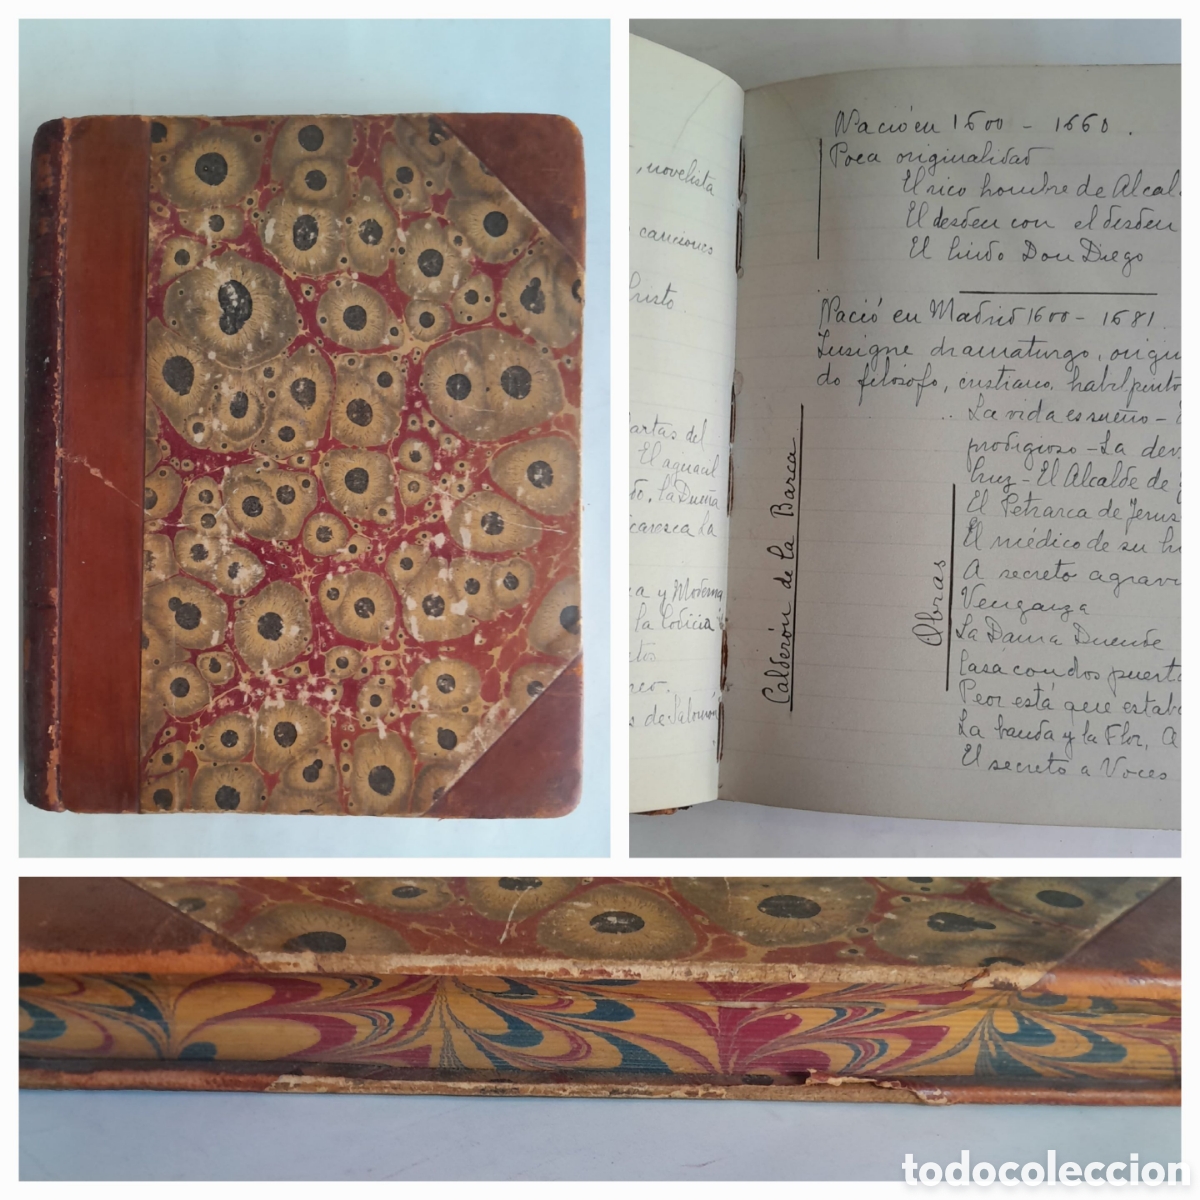 , novelista
cancionero
Cristo
Cartas del
El aguacil
la Dueña
Picaresca La
y Moderna
la Codicia
de Salomón
Nació en 1600 - 1660.
Poca originalidad
El rico hombre de Alcal
El desden con el desden
El lindo Don Diego
Nació en Madrid 1600 - 1681.
Insigne dramaturgo, origi
do filósofo, cristiano, habil pinto
La vida es sueño -
prodigioso - La dev
Cruz - El Alcalde de
El Petrarca de Jerus
El médico de su h
A secreto agravi
Venganza
La Dama Duende
Casa con dos puerta
Peor está que estab
La banda y la Flor, A
El secreto a Voces
Calderón de la Barca
Obras
todocoleccion